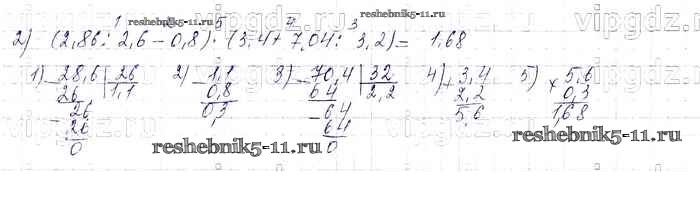 1 reshebnik5-11.ru 5 4 3
2) (2,86 : 2,6 - 0,8) · (3,4 + 7,04 : 3,2) = 1,68
1) - 28,6 | 26 2) - 1,1 3) - 70,4 | 32 4) + 3,4 5) × 5,6
26 1,1 0,8 64 2,2 2,2 0,3
- 26 0,3 - 64 5,6 1,68
26 64
0 0
reshebnik5-11.ru
reshebnik5-11.ru
vipgdz.ru